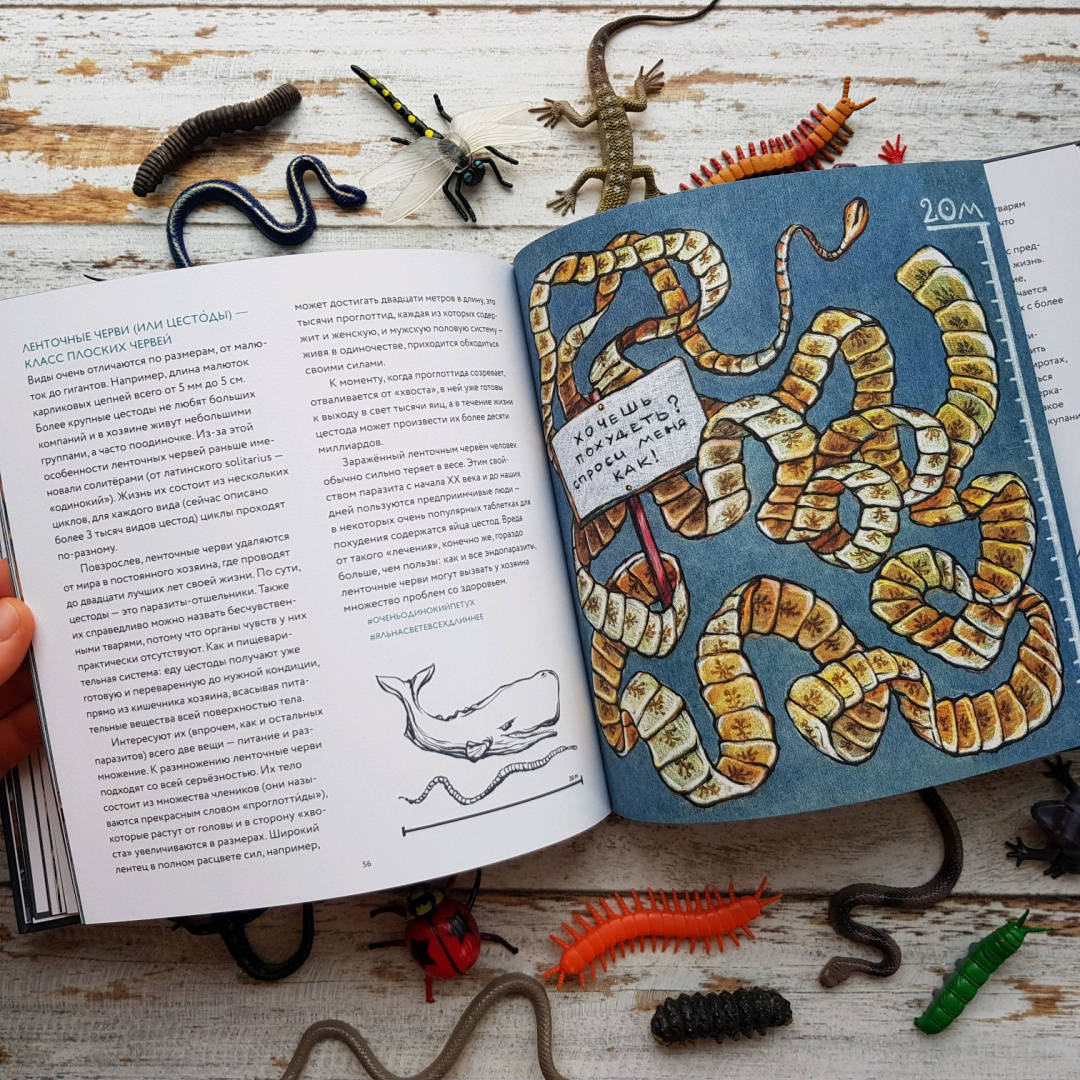 ЛЕНТОЧНЫЕ ЧЕРВИ (ИЛИ ЦЕСТО́ДЫ) —
КЛАСС ПЛОСКИХ ЧЕРВЕЙ
Виды очень отличаются по размерам, от малю-
ток до гигантов. Например, длина малюток
карликовых цепней всего от 5 мм до 5 см.
Более крупные цестоды не любят больших
компаний и в хозяине живут небольшими
группами, а часто поодиночке. Из-за этой
особенности ленточных червей раньше име-
новали солитёрами (от латинского solitarius —
«одинокий»). Жизнь их состоит из нескольких
циклов, для каждого вида (сейчас описано
более 3 тысяч видов цестод) циклы проходят
по-разному.
Повзрослев, ленточные черви удаляются
от мира в постоянного хозяина, где проводят
до двадцати лучших лет своей жизни. По сути,
цестоды — это паразиты-отшельники. Также
их справедливо можно назвать бесчувствен-
ными тварями, потому что органы чувств у них
практически отсутствуют. Как и пищевари-
тельная система: еду цестоды получают уже
готовую и переваренную до нужной кондиции,
прямо из кишечника хозяина, всасывая пита-
тельные вещества всей поверхностью тела.
Интересуют их (впрочем, как и остальных
паразитов) всего две вещи — питание и раз-
множение. К размножению ленточные черви
подходят со всей серьёзностью. Их тело
состоит из множества члеников (они назы-
ваются прекрасным словом «проглотти́ды»),
которые растут от головы и в сторону «хво-
ста» увеличиваются в размерах. Широкий
лентец в полном расцвете сил, например,
может достигать двадцати метров в длину, это
тысячи проглоттид, каждая из которых содер-
жит и женскую, и мужскую половую систему —
живя в одиночестве, приходится обходиться
своими силами.
К моменту, когда проглоттида созревает,
отваливается от «хвоста», в ней уже готовы
к выходу в свет тысячи яиц, а в течение жизни
цестода может произвести их более десяти
миллиардов.
Заражённый ленточным червём человек
обычно сильно теряет в весе. Этим свой-
ством паразита с начала XX века и до наших
дней пользуются предприимчивые люди —
в некоторых очень популярных таблетках для
похудения содержатся яйца цестод. Вреда
от такого «лечения», конечно же, гораздо
больше, чем пользы: как и все эндопаразиты,
ленточные черви могут вызвать у хозяина
множество проблем со здоровьем.
#ОЧЕНЬОДИНОКИЙПЕТУХ
#ЯЛЬНАСВЕТЕВСЕХДЛИННЕЕ
20 м
56
20м
ХОЧЕШЬ
ПОХУДЕТЬ?
СПРОСИ МЕНЯ
КАК!
тварям
что
с пред-
жизнь.
ние,
чается
х с более